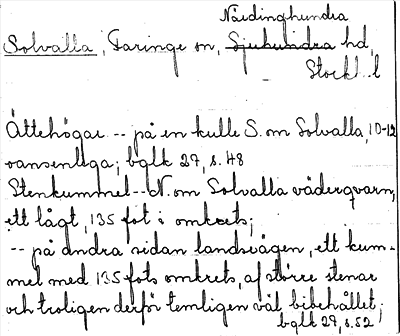 Närdinghundra
Solvalla, Faringe sn, Sjuhundra hd,
Stockh. l
Ättehögar -- på en kulle S. om Solvalla, 10-12
oansenliga; bglk 29, s. 48
Stenkummel -- N. om Solvalla väderqvarn,
ett lågt, 135 fot i omkrets;
-- på andra sidan landsvägen, ett kum-
mel med 135 fots omkrets, af större stenar
och troligen derför temligen väl bibehållet;
bglk 29, s. 52